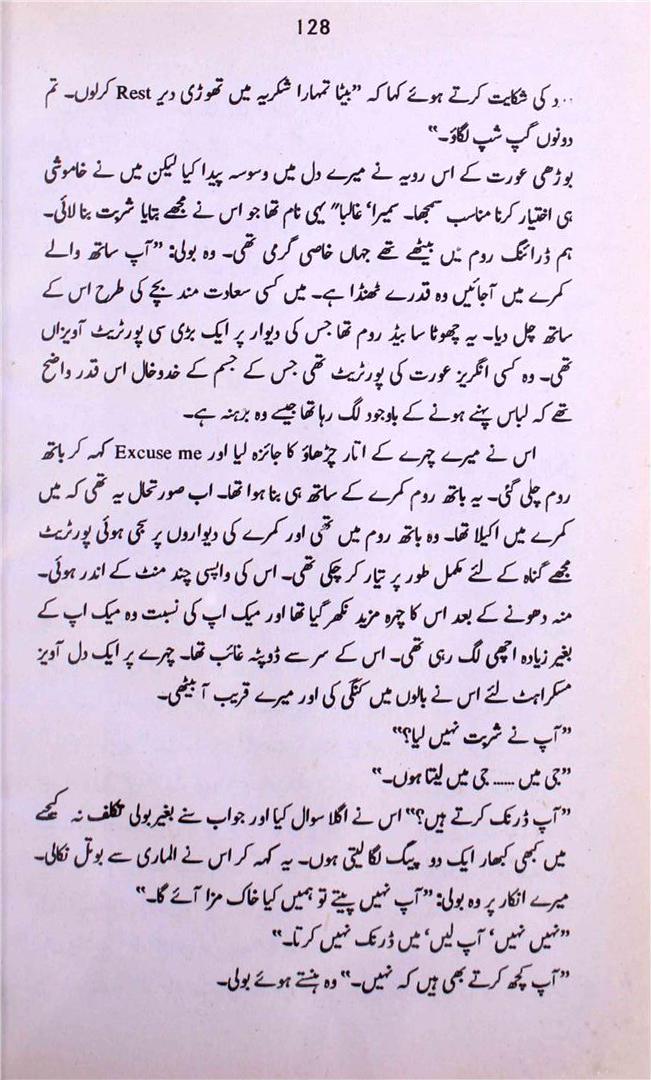 128
د کی شکایت کرتے ہوئے کہا کہ ”بیٹا تمہارا شکریہ میں تھوڑی دیر Rest کرلوں۔ تم
دونوں گپ شپ لگاؤ۔“
بوڑھی عورت کے اس رویہ نے میرے دل میں وسوسہ پیدا کیا لیکن میں نے خاموشی
ہی اختیار کرنا مناسب سمجھا۔ سمیرا‘ غالبا” یہی نام تھا جو اس نے مجھے بتایا شربت بنا لائی۔
ہم ڈرائنگ روم میں بیٹھے تھے جہاں خاصی گرمی تھی۔ وہ بولی: ”آپ ساتھ والے
کمرے میں آجائیں وہ قدرے ٹھنڈا ہے۔ میں کسی سعادت مند بچے کی طرح اس کے
ساتھ چل دیا۔ یہ چھوٹا سا بیڈ روم تھا جس کی دیوار پر ایک بڑی سی پورٹریٹ آویزاں
تھی۔ وہ کسی انگریز عورت کی پورٹریٹ تھی جس کے جسم کے خدوخال اس قدر واضح
تھے کہ لباس پہنے ہونے کے باوجود لگ رہا تھا جیسے وہ برہنہ ہے۔
اس نے میرے چہرے کے اتار چڑھاؤ کا جائزہ لیا اور Excuse me کہہ کر باتھ
روم چلی گئی۔ یہ باتھ روم کمرے کے ساتھ ہی بنا ہوا تھا۔ اب صورتحال یہ تھی کہ میں
کمرے میں اکیلا تھا۔ وہ باتھ روم میں تھی اور کمرے کی دیواروں پر سجی ہوئی پورٹریٹ
مجھے گناہ کے لئے مکمل طور پر تیار کر چکی تھی۔ اس کی واپسی چند منٹ کے اندر ہوئی۔
منہ دھونے کے بعد اس کا چہرہ مزید نکھر گیا تھا اور میک اپ کی نسبت وہ میک اپ کے
بغیر زیادہ اچھی لگ رہی تھی۔ اس کے سر سے ڈوپٹہ غائب تھا۔ چہرے پر ایک دل آویز
مسکراہٹ لئے اس نے بالوں میں کنگی کی اور میرے قریب آ بیٹھی۔
”آپ نے شربت نہیں لیا؟“
”جی میں ...... جی میں لیتا ہوں۔“
”آپ ڈرنک کرتے ہیں؟“ اس نے اگلا سوال کیا اور جواب سنے بغیر بولی تکلف نہ کیجئے
میں کبھی کبھار ایک دو پیگ لگا لیتی ہوں۔ یہ کہہ کر اس نے الماری سے بوتل نکالی۔
میرے انکار پر وہ بولی: ”آپ نہیں پیتے تو ہمیں کیا خاک مزا آئے گا۔“
”نہیں نہیں‘ آپ لیں‘ میں ڈرنک نہیں کرتا۔“
”آپ کچھ کرتے بھی ہیں کہ نہیں۔“ وہ ہنستے ہوئے بولی۔